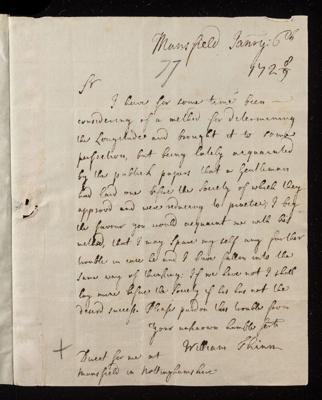 Mansfield Janry: 6th
77
172 8/9
Sr
I have for some time been
considering of a method for determining
the Longitude and brought it to some
perfection, but being lately acquainted
by the publick papers that a Gentleman
had laid one before the Society of which they
approved and were reducing to practice; I beg
the favour you would acquaint me with his
method, that I may spare my self any further
trouble in case he and I have fallen into the
same way of thinking: If we have not I shall
lay mine before the Society if his has not the
desired success. Please pardon this trouble from
Your unknown humble servt
William
Direct for me at
Mansfield in Nottinghamshire